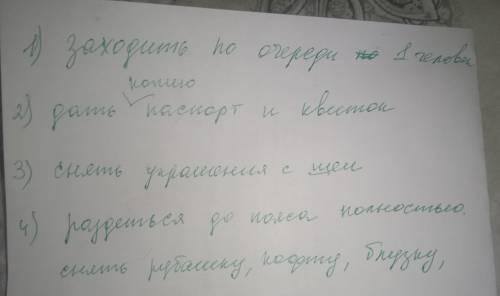 1) заходить по очереди по 1 человек
копию
2) дать паспорт и квиток
3) снять украшения с шеи
4) раздеться до пояса полностью.
снять рубашку, кофту, блузку,